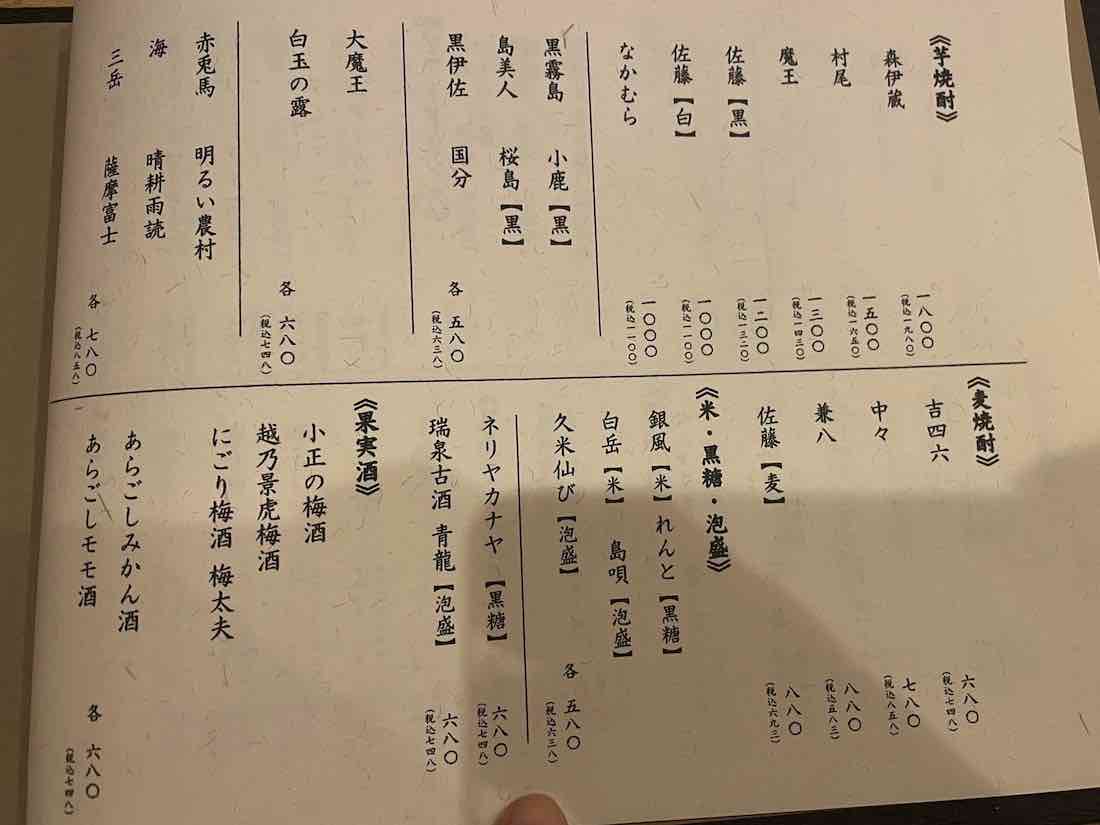 《芋焼酎》
森伊蔵 一八〇〇
(税込一九八〇)
村尾 一五〇〇
(税込一六五〇)
魔王 一三〇〇
(税込一四三〇)
佐藤【黒】 一二〇〇
(税込一三二〇)
佐藤【白】 一〇〇〇
(税込一一〇〇)
なかむら 一〇〇〇
(税込一一〇〇)
黒霧島 小鹿【黒】
島美人 桜島【黒】
黒伊佐 国分 各 五八〇
(税込六三八)
大魔王
白玉の露 各 六八〇
(税込七四八)
赤兎馬 明るい農村
海 晴耕雨読
三岳 薩摩富士 各 七八〇
(税込八五八)
《麦焼酎》
吉四六 六八〇
(税込七四八)
中々 七八〇
(税込八五八)
兼八 八八〇
(税込五八三)
佐藤【麦】 八八〇
(税込六九三)
《米・黒糖・泡盛》
銀風【米】 れんと【黒糖】
白岳【米】 島唄【泡盛】
久米仙び【泡盛】 各 五八〇
(税込六三八)
ネリヤカナヤ【黒糖】 六八〇
(税込七四八)
瑞泉古酒 青龍【泡盛】 六八〇
(税込七四八)
《果実酒》
小正の梅酒
越乃景虎梅酒
にごり梅酒 梅太夫
あらごしみかん酒
あらごしモモ酒 各 六八〇
(税込七四八)